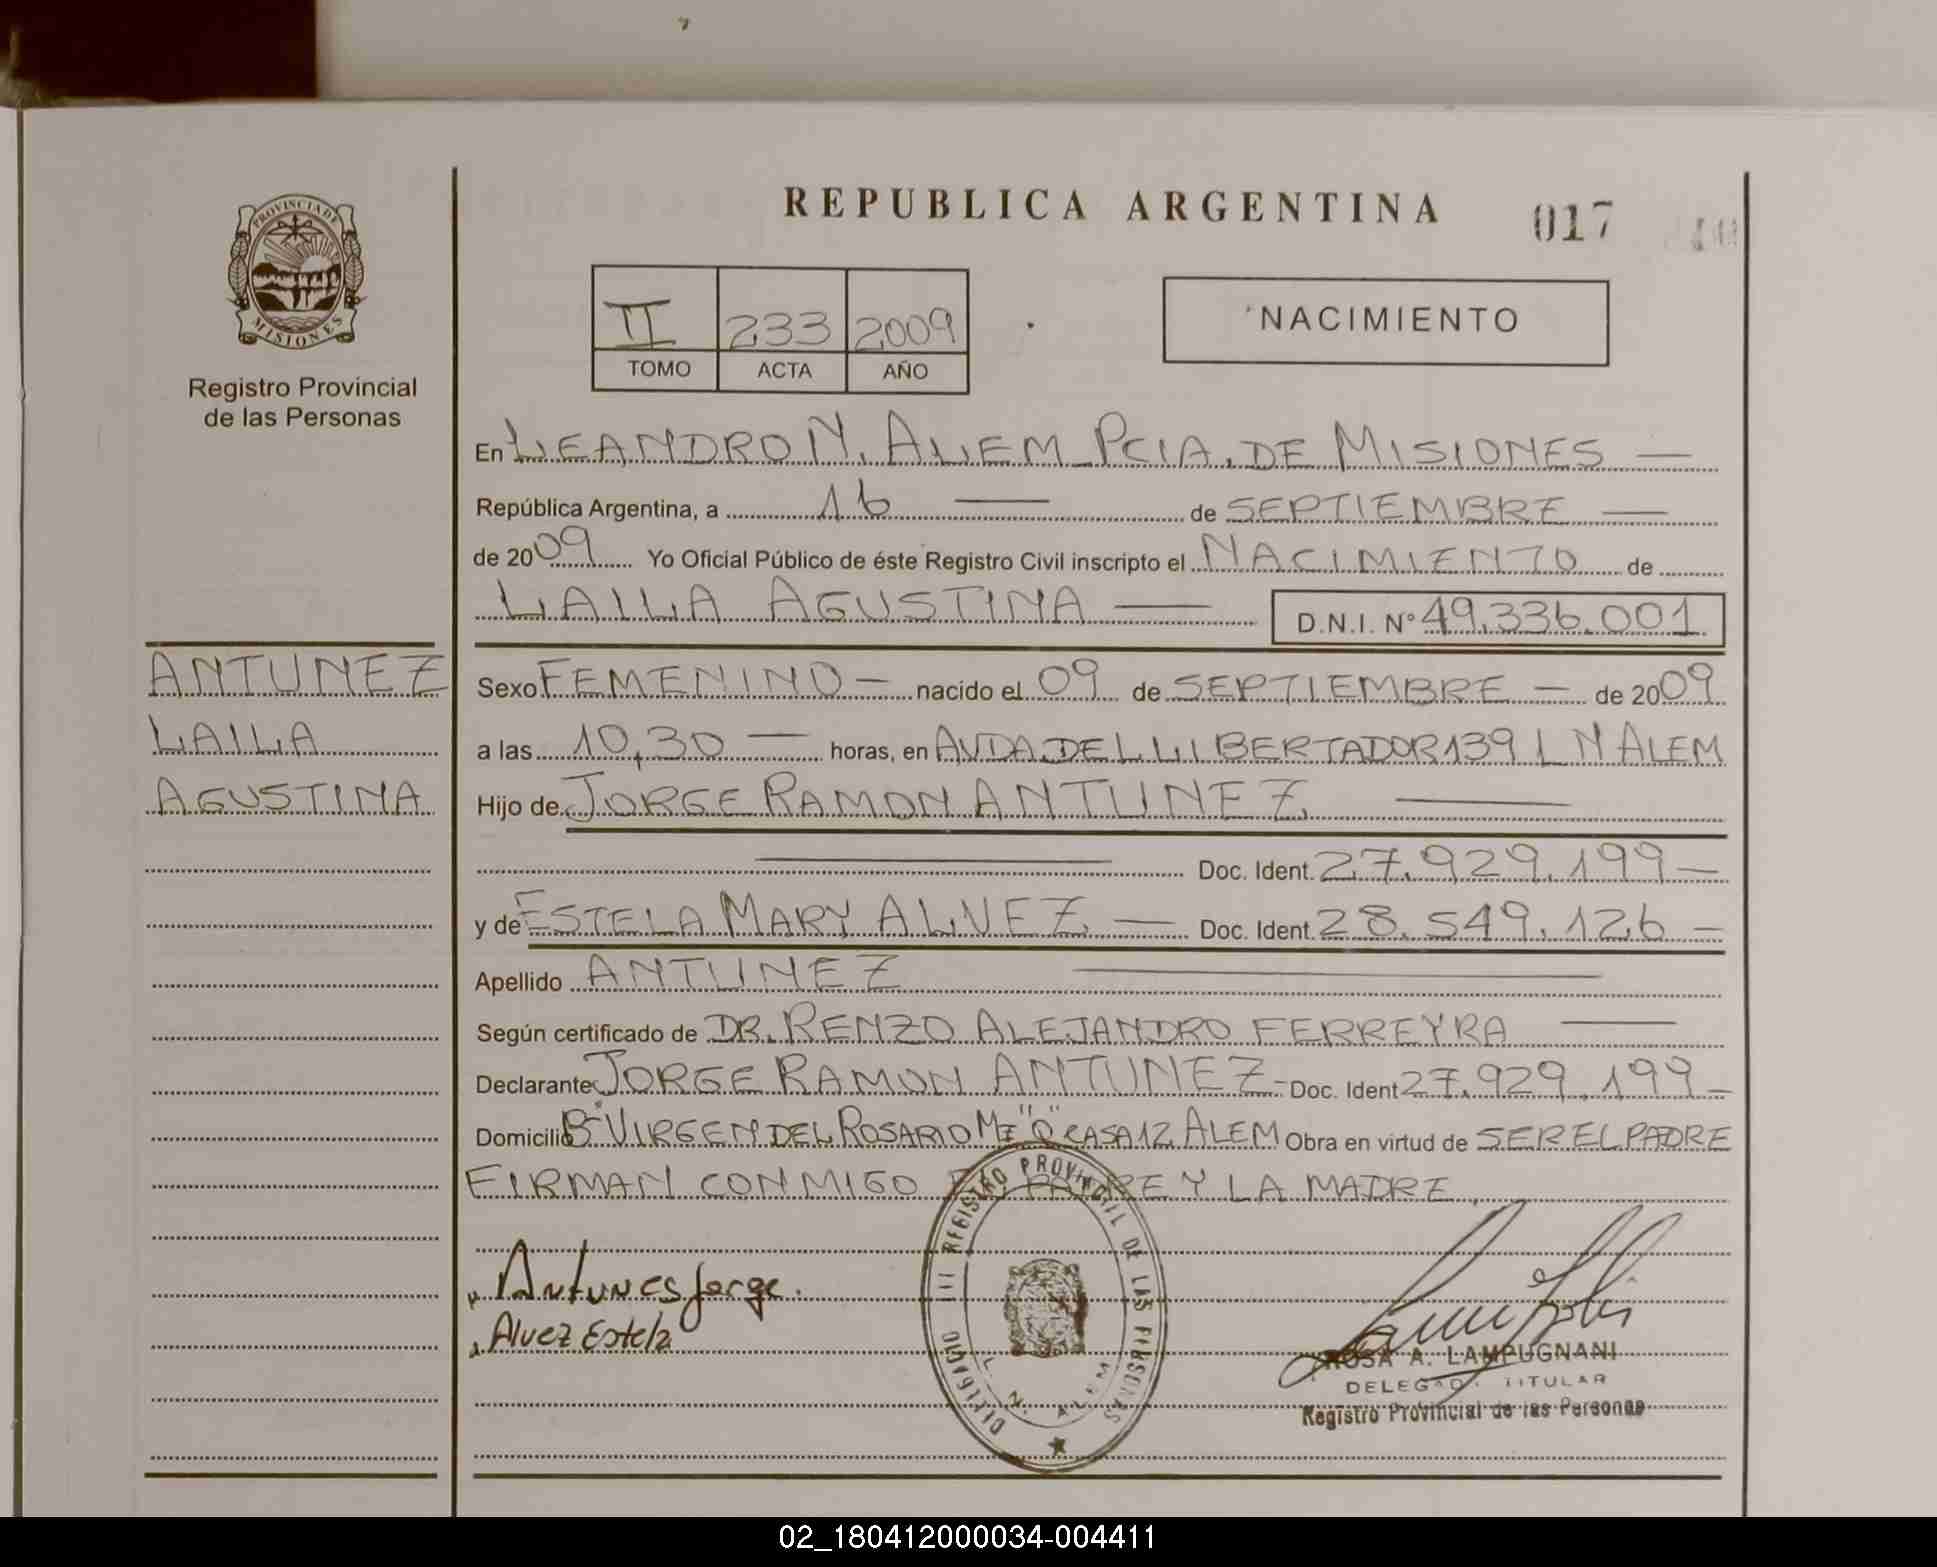 REPUBLICA ARGENTINA
017
PROVINCIA DE
MISIONES
Registro Provincial
de las Personas
II 233 2009
TOMO ACTA AÑO
NACIMIENTO
En LEANDRO N. ALEM PCIA. DE MISIONES —
República Argentina, a 16 — de SEPTIEMBRE —
de 2009 Yo Oficial Público de éste Registro Civil inscripto el NACIMIENTO de
LAILA AGUSTINA — D.N.I. Nº 49.336.001
ANTUNEZ
LAILA
AGUSTINA
Sexo FEMENINO — nacido el 09 de SEPTIEMBRE — de 2009
a las 10,30 — horas, en AVDA. DEL LIBERTADOR 139 L N ALEM
Hijo de JORGE RAMON ANTUNEZ —
Doc. Ident. 27.929.199 —
y de ESTELA MARY ALVEZ — Doc. Ident. 28.549.126 —
Apellido ANTUNEZ —
Según certificado de DR. RENZO ALEJANDRO FERREYRA —
Declarante JORGE RAMON ANTUNEZ - Doc. Ident 27.929.199 —
Domicilio Bº VIRGEN DEL ROSARIO Mz "O" CASA 12 ALEM Obra en virtud de SER EL PADRE
FIRMAN CONMIGO EL PADRE Y LA MADRE
Antunes Jorge.
Alvez Estela
DELEGACIO III REGISTRO PROVINCIAL DE LAS PERSONAS
L. N. ALEM
ROSA A. LAMPUGNANI
DELEGADA TITULAR
Registro Provincial de las Personas
02_180412000034-004411